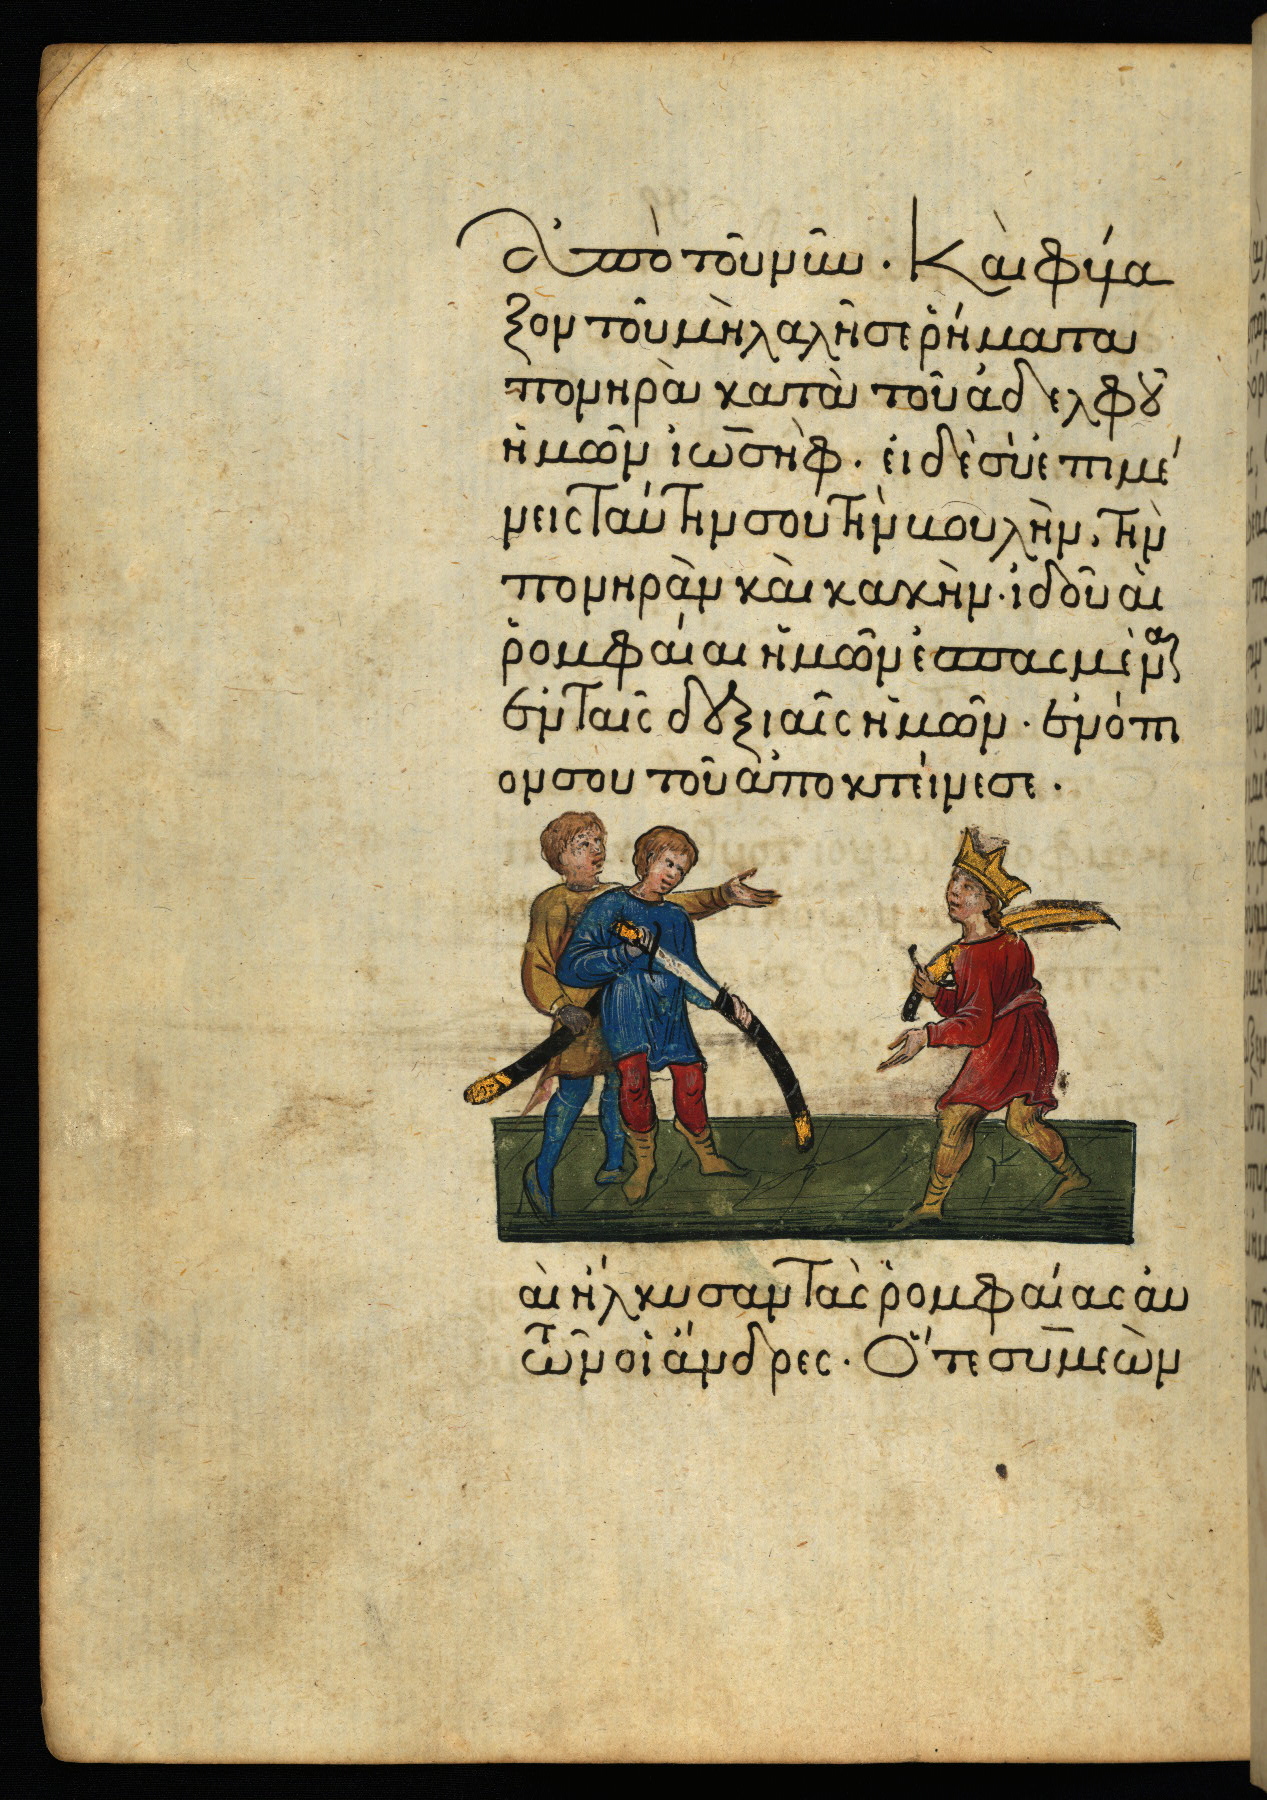 ἀπὸ τοῦ νῦν. Καὶ φύλα
ξον τοῦ μὴ λαλῆσε ῥήματα
πονηρὰ κατὰ τοῦ ἀδελφοῦ
ἡμῶν ἰωσὴφ. εἰ δὲ σὺ ἐπιμέ
νεις ταύτην σου τὴν βουλὴν, τὴν
πονηρὰν καὶ κακὴν. ἰδοῦ αἱ
ῥομφαίαι ἡμῶν ἐσπασμέναι
ἐν ταῖς δεξιαῖς ἡμῶν. ἐνόπι
ον σου τοῦ ἀποκτείνεσε.
αὶ ἥλκυσαν τὰς ῥομφαίας αὐ
τῶν οἱ ἄνδρες. Ὅτε συμεὼν